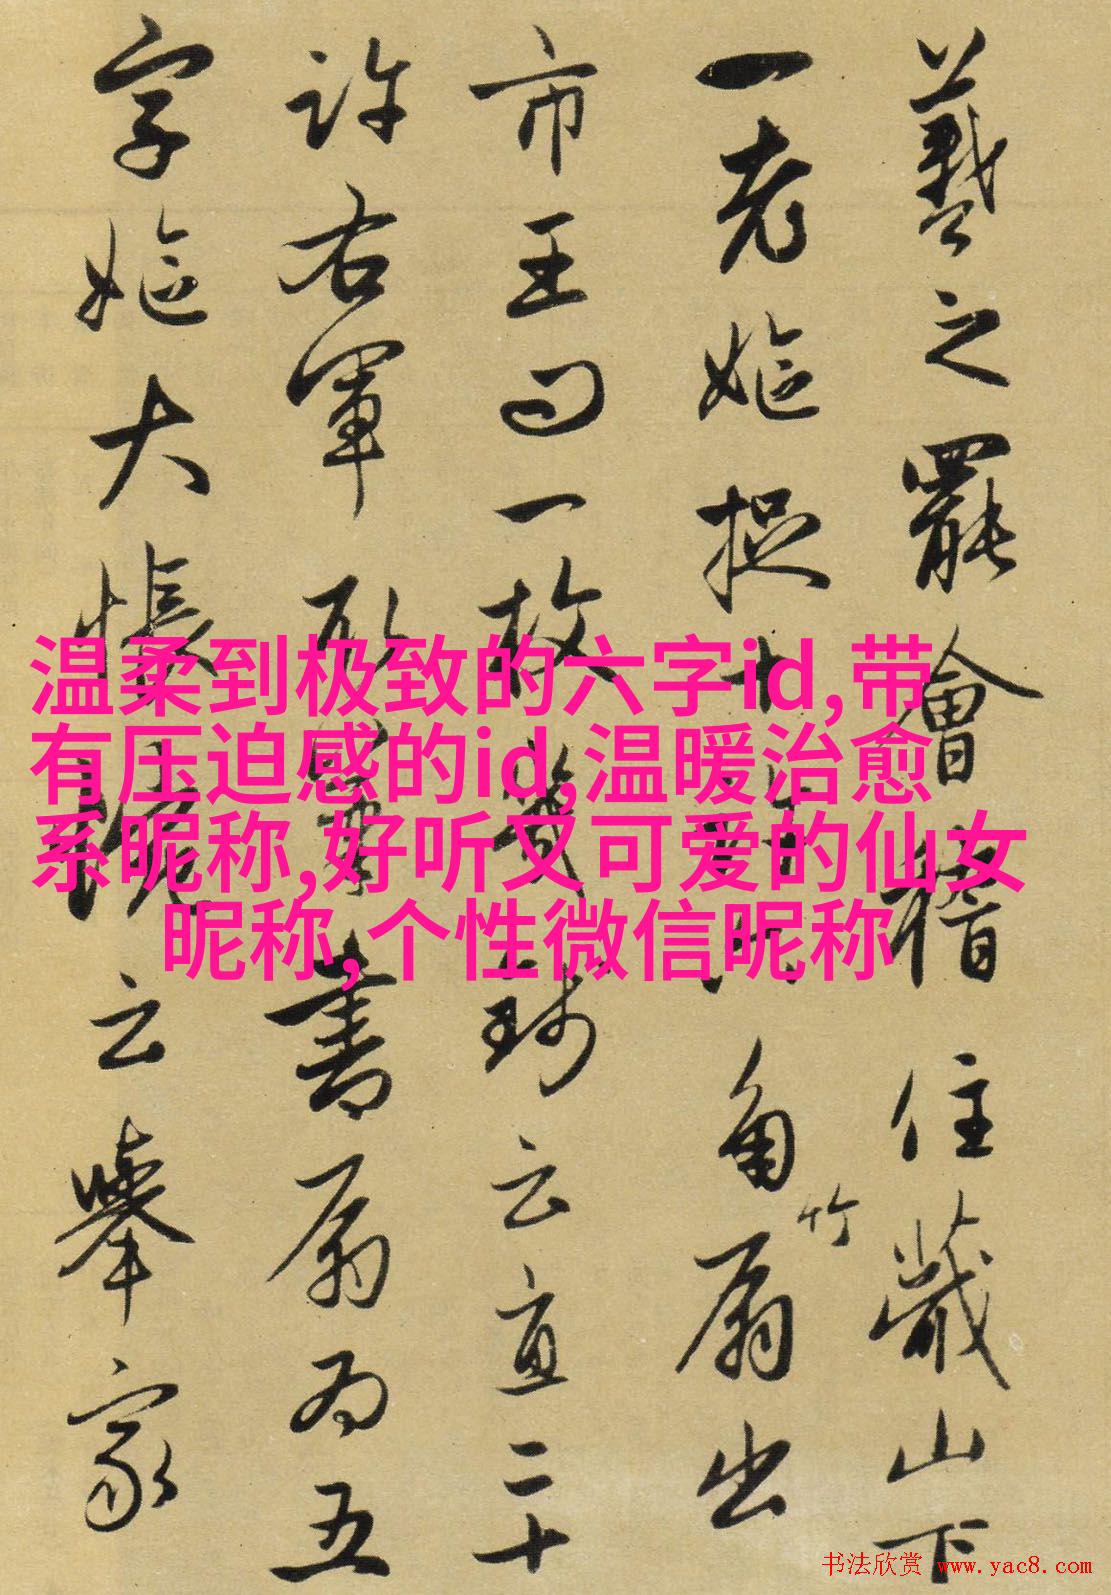 羲之罷會稽住蕺山下
一老嫗捉十角竹扇出
市王曰一枚幾錢云直二十
許右軍取筆書扇為五
字嫗大悵惋云舉家
温柔到极致的六字id,带
有压迫感的id,温暖治愈
系昵称,好听又可爱的仙女
昵称,个性微信昵称
书法欣赏 www.yac8.com